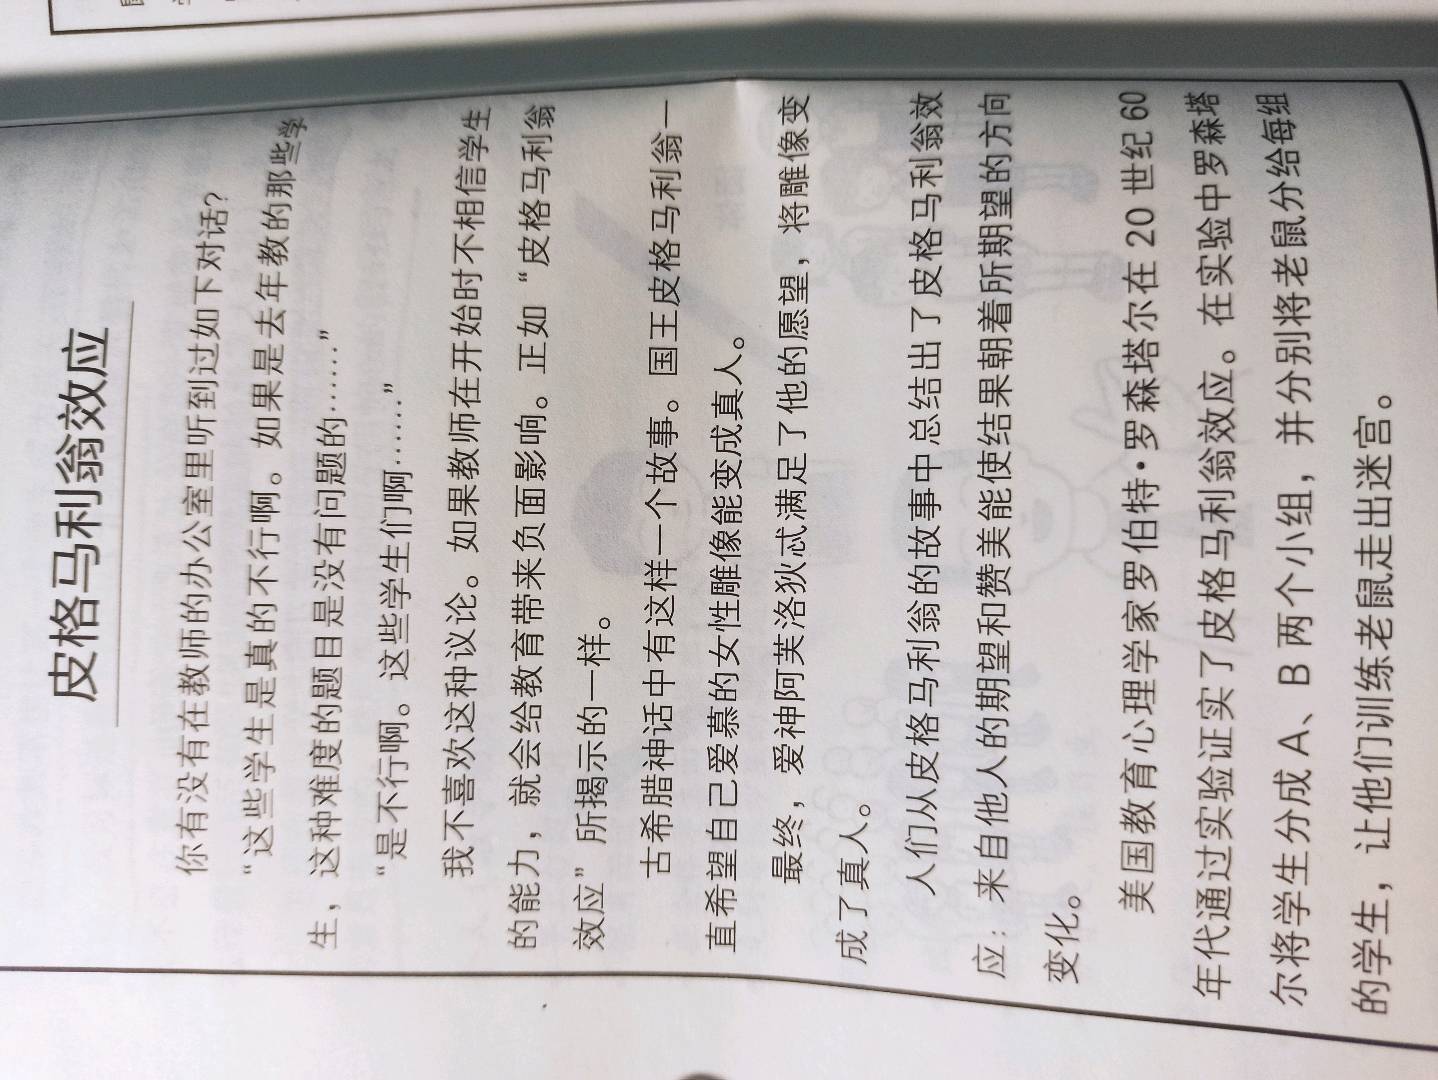 皮格马利翁效应
你有没有在教师的办公室里听到过如下对话?
“这些学生是真的不行啊。如果是去年教的那些学
生，这种难度的题目是没有问题的……”
“是不行啊。这些学生们啊……”
我不喜欢这种议论。如果教师在开始时不相信学生
的能力，就会给教育带来负面影响。正如“皮格马利翁
效应”所揭示的一样。
古希腊神话中有这样一个故事。国王皮格马利翁一
直希望自己爱慕的女性雕像能变成真人。
最终，爱神阿芙洛狄忒满足了他的愿望，将雕像变
成了真人。
人们从皮格马利翁的故事中总结出了皮格马利翁效
应：来自他人的期望和赞美能使结果朝着所期望的方向
变化。
美国教育心理学家罗伯特·罗森塔尔在20世纪60
年代通过实验证实了皮格马利翁效应。在实验中罗森塔
尔将学生分成A、B两个小组，并分别将老鼠分给每组
的学生，让他们训练老鼠走出迷宫。